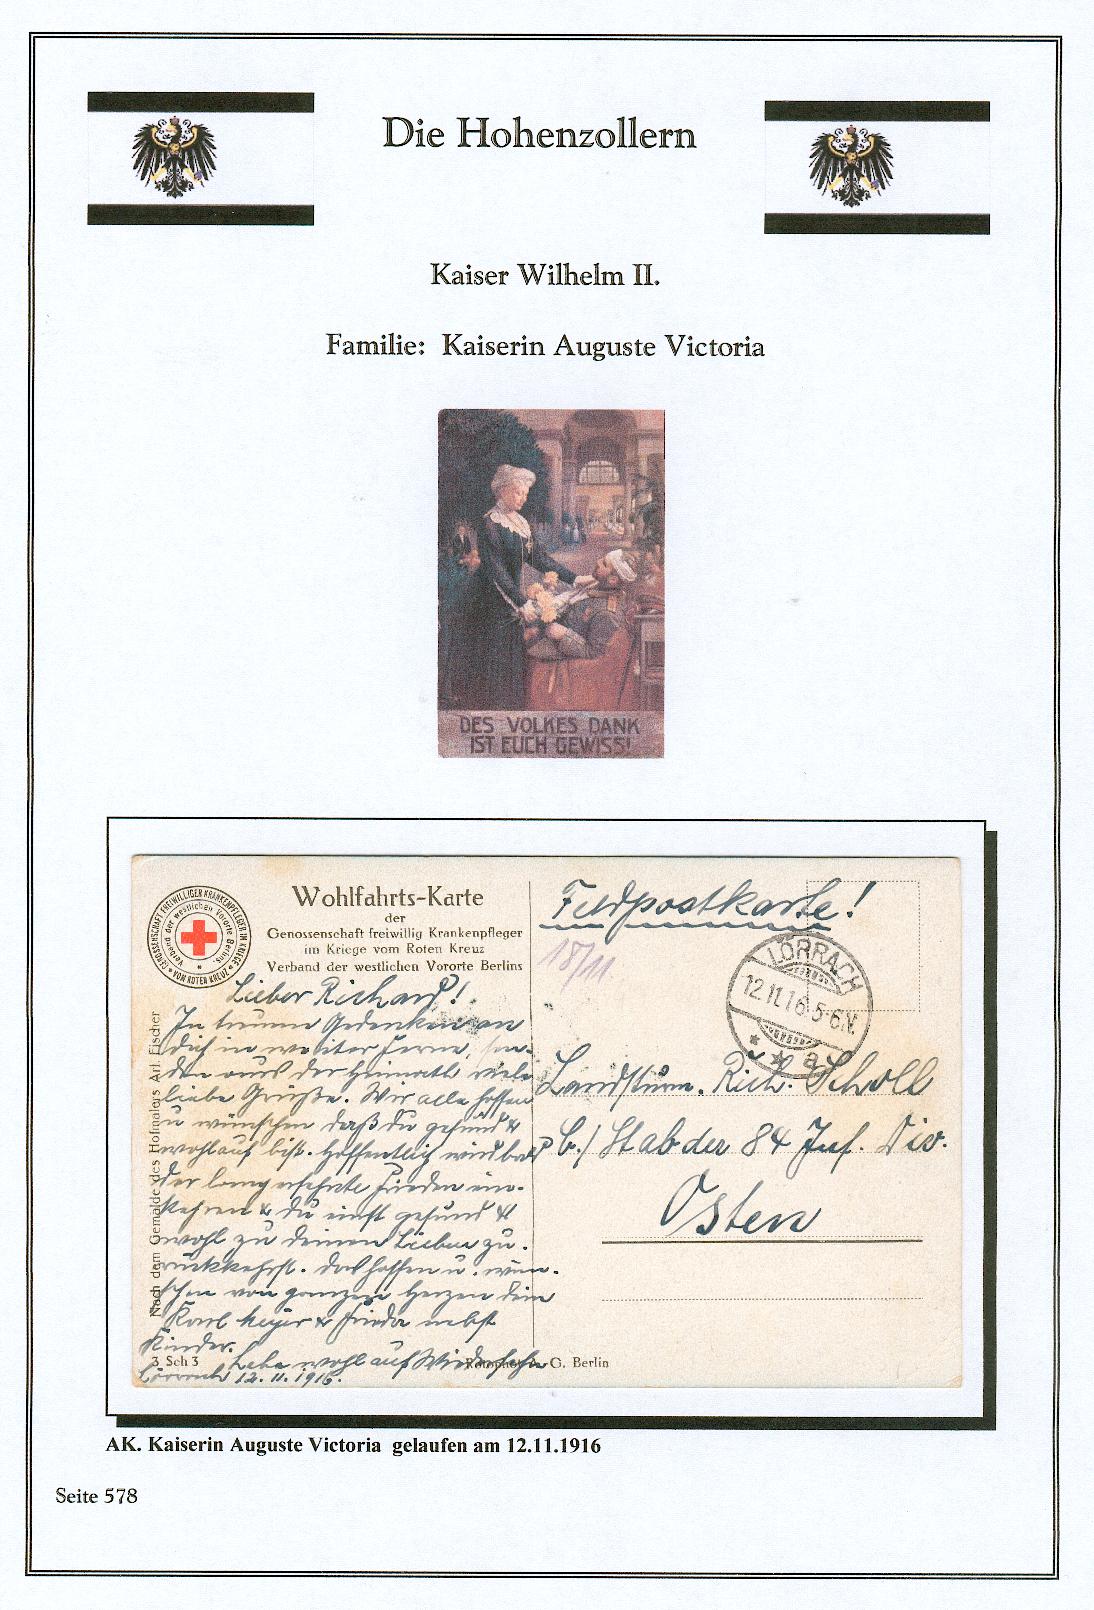 Die Hohenzollern
Kaiser Wilhelm II.
Familie: Kaiserin Auguste Victoria
DES VOLKES DANK
IST EUCH GEWISS!
GENOSSENSCHAFT FREIWILLIGER KRANKENPFLEGER IM KRIEGE
VOM ROTEN KREUZ
Verband der westlichen Vororte Berlins.
Wohlfahrts-Karte
der
Genossenschaft freiwillig Krankenpfleger
im Kriege vom Roten Kreuz
Verband der westlichen Vororte Berlins
Lieber Richard!
In treuem Gedenken an
dich in weiter Ferne, sen-
den aus der Heimath viele
liebe Grüße. Wir alle hoffen
u wünschen daß du gesund &
wohlauf bist. Hoffentlich wird bald
der lang ersehnte Frieden ein-
kehren & du einst gesund &
wohl zu deinen Lieben zu-
rückkehrst. Das hoffen u. wün-
schen von ganzem Herzen dein
Karl Meyer & Frieda nebst
Kinder.
Lebe wohl auf Wiedersehn
Lörrach 12.11.1916.
Nach dem Gemälde des Hofmalers Arl. Fischer
3 Sch 3
Rotophot A. G. Berlin
Feldpostkarte!
18/11.
LÖRRACH
12.11.16.5-6.N.
* * a
Landsturm. Rich. Scholl
b./ Stab der 84 Inf. Div.
Osten
AK. Kaiserin Auguste Victoria gelaufen am 12.11.1916
Seite 578